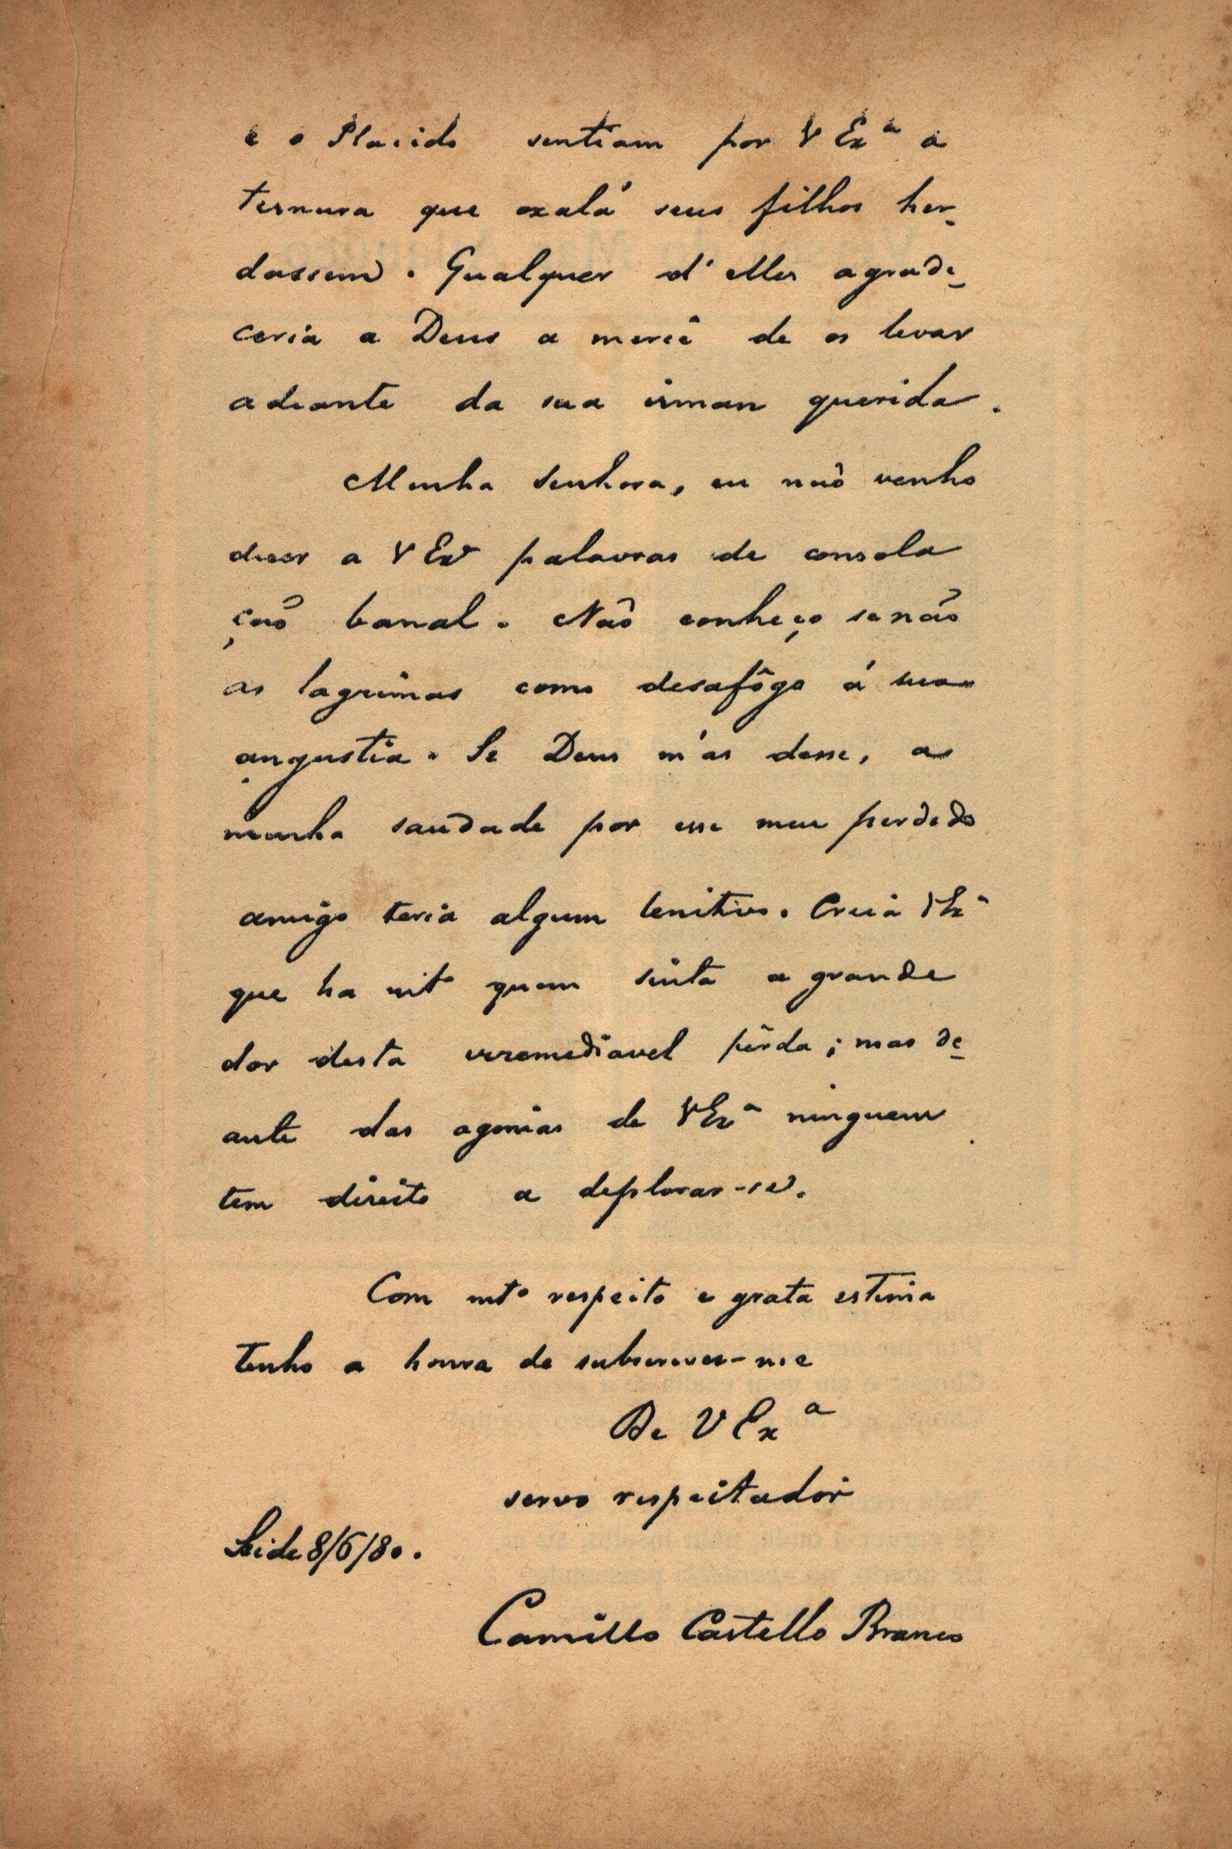 e o Placido sentiam por V Exª a
ternura que oxalá seus filhos her-
dassem. Qualquer d'elles agrade-
ceria a Deus a mercê de os levar
adiante da sua irman querida.
Minha Senhora, eu não venho
dizer a V Exª palavras de consola
ção banal. Não conheço senão
as lagrimas como desafôgo á
angustia. Se Deus m'as desse, a
minha saudade por esse meu perdido
amigo teria algum lenitivo. Creia V Exª
que ha mtº quem sinta a grande
dor desta irremediavel pêrda; mas de-
ante das agonias de V Exª ninguem
tem direito a deplorar-se.
Com mtº respeito e grata estima
tenho a honra de subscrever-me
De V Exª
servo respeitador
Seide 8/6/80.
Camillo Castello Branco